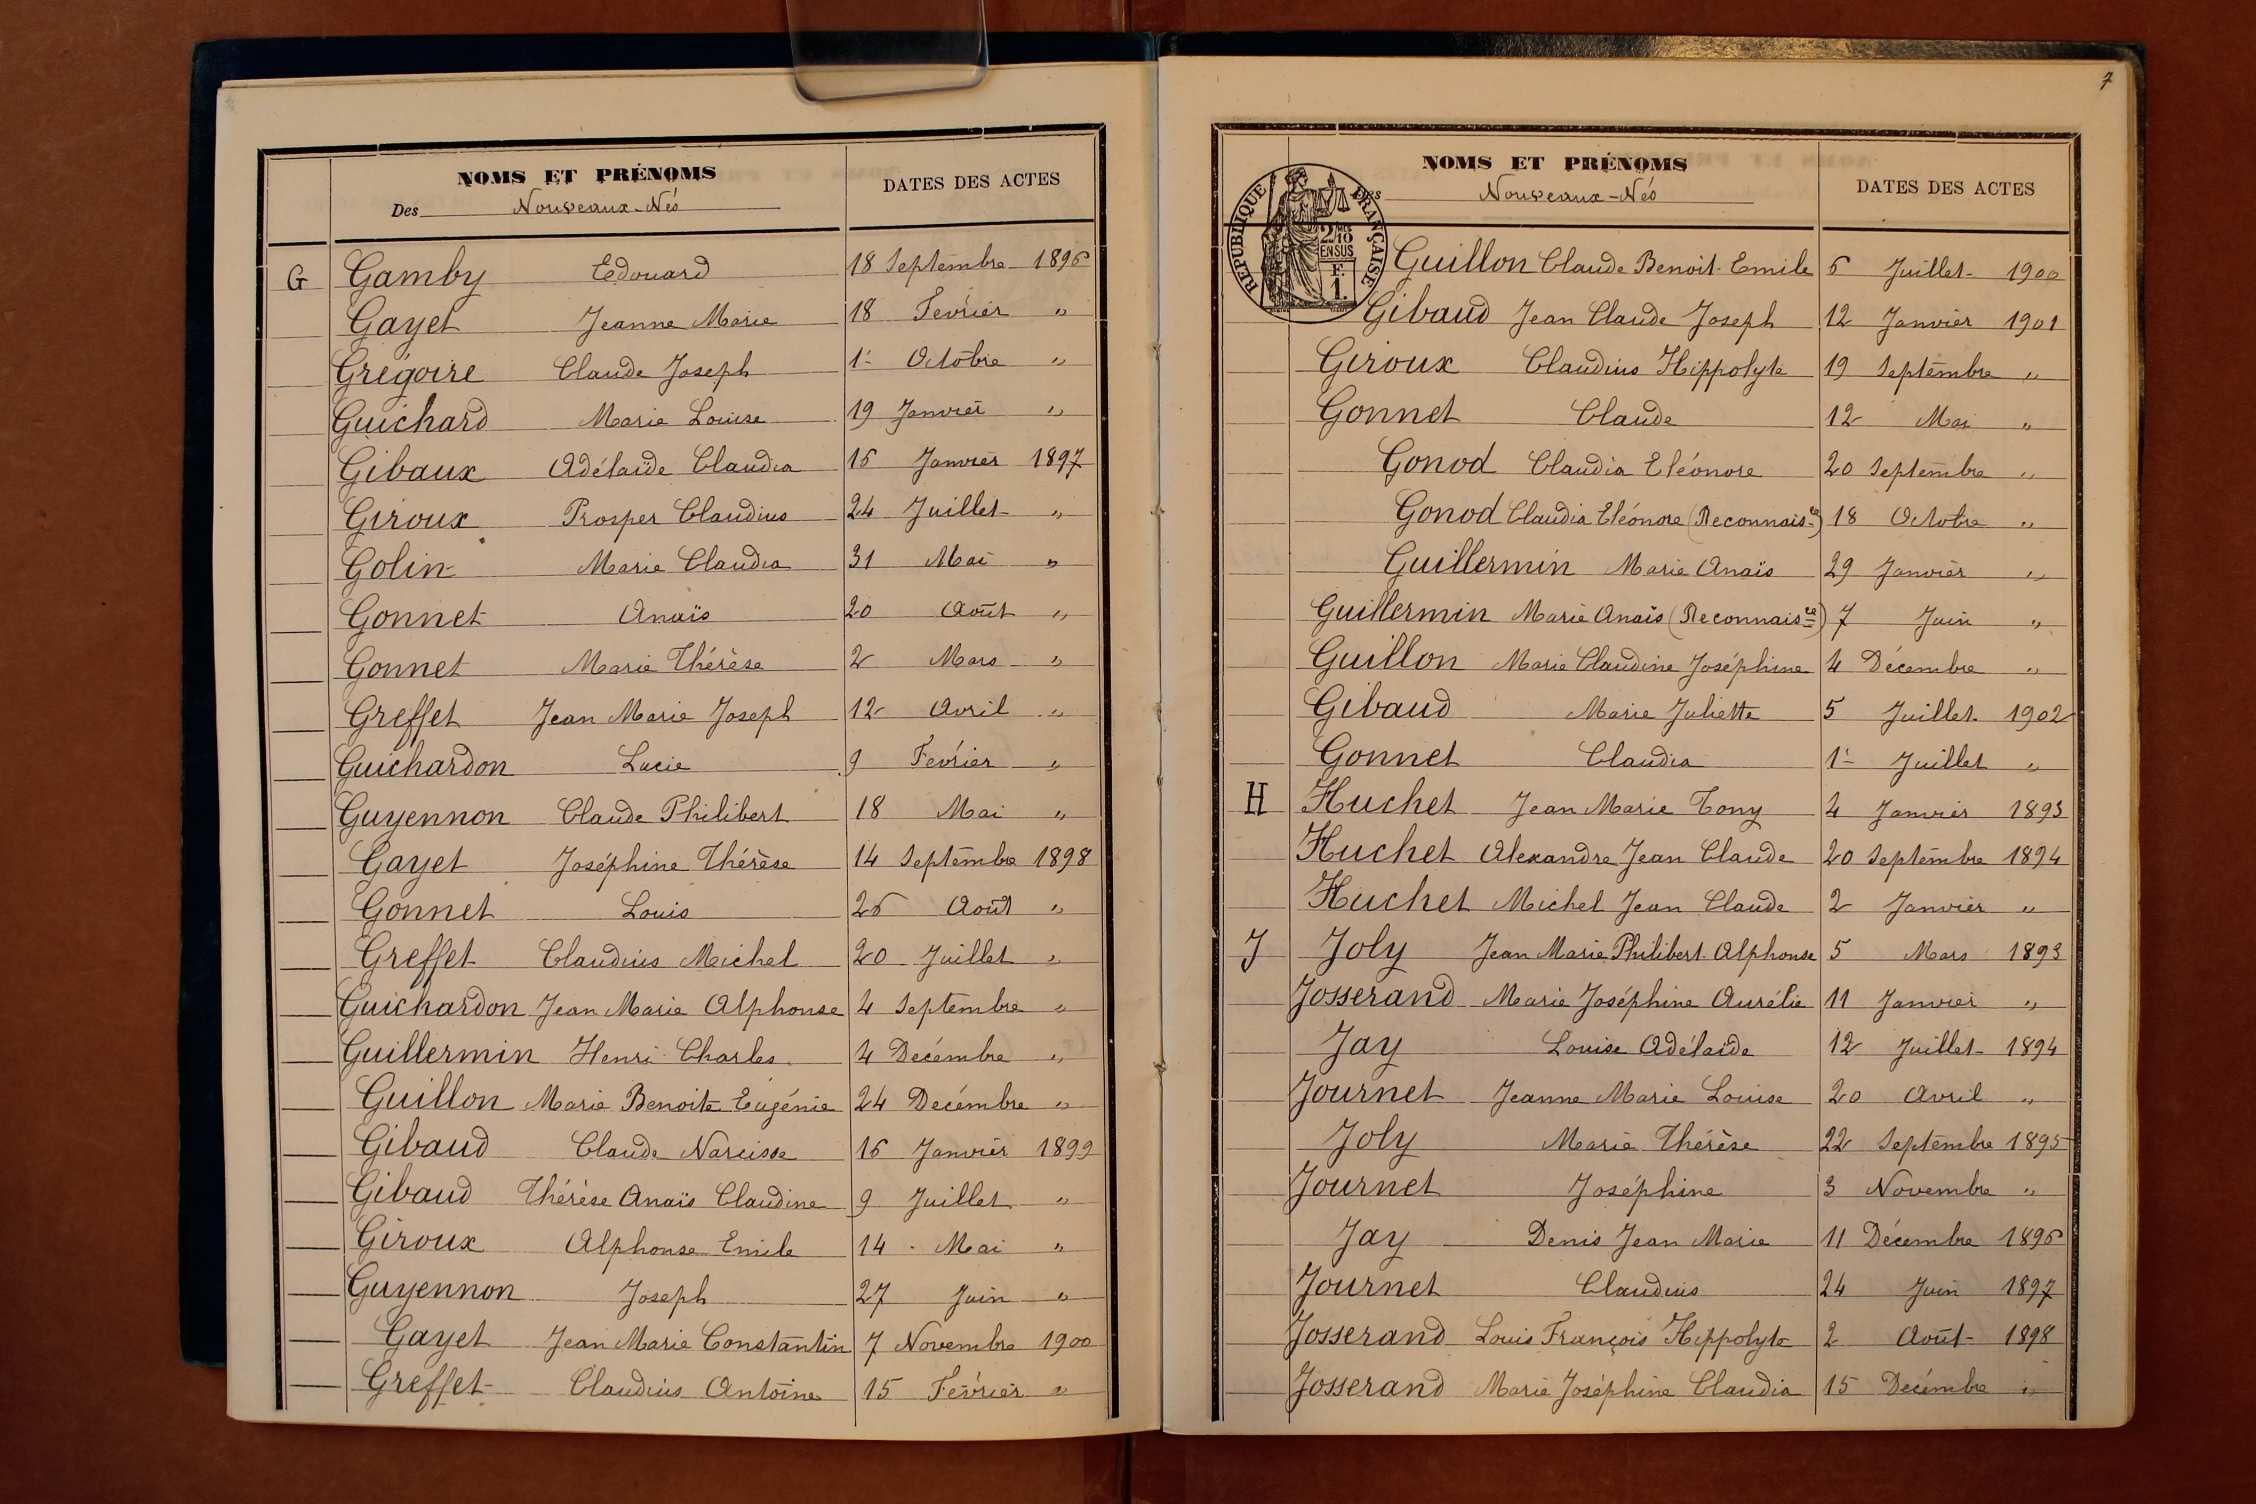 NOMS ET PRÉNOMS
DATES DES ACTES
Des Nouveaux-Nés
G Gamby Edouard 18 Septembre 1896
Gayet Jeanne Marie 18 Février "
Grégoire Claude Joseph 1er Octobre "
Guichard Marie Louise 19 Janvier "
Gibaux Adélaïde Claudia 16 Janvier 1897
Giroux Prosper Claudius 24 Juillet "
Golin Marie Claudia 31 Mai "
Gonnet Anaïs 20 Août "
Gonnet Marie Thérèse 2 Mars "
Greffet Jean Marie Joseph 12 Avril "
Guichardon Lucie 9 Février "
Guyennon Claude Philibert 18 Mai "
Gayet Joséphine Thérèse 14 Septembre 1898
Gonnet Louis 26 Août "
Greffet Claudius Michel 20 Juillet "
Guichardon Jean Marie Alphonse 4 Septembre "
Guillermin Henri Charles 4 Décembre "
Guillon Marie Benoite Eugénie 24 Décembre "
Gibaud Claude Narcisse 16 Janvier 1899
Gibaud Thérèse Anaïs Claudine 9 Juillet "
Giroux Alphonse Emile 14 Mai "
Guyennon Joseph 27 Juin "
Gayet Jean Marie Constantin 7 Novembre 1900
Greffet Claudius Antoine 15 Février "
7
NOMS ET PRÉNOMS
DATES DES ACTES
Des Nouveaux-Nés
RÉPUBLIQUE FRANÇAISE
2/10
EN SUS
F.
1.
Guillon Claude Benoit Emile 6 Juillet 1900
Gibaud Jean Claude Joseph 12 Janvier 1901
Giroux Claudius Hippolyte 19 Septembre "
Gonnet Claude 12 Mai "
Gonod Claudia Eléonore 20 Septembre "
Gonod Claudia Eléonore (Reconnaisce) 18 Octobre "
Guillermin Marie Anaïs 29 Janvier "
Guillermin Marie Anaïs (Reconnaisce) 7 Juin "
Guillon Marie Claudine Joséphine 4 Décembre "
Gibaud Marie Juliette 5 Juillet 1902
Gonnet Claudia 1er Juillet "
H Huchet Jean Marie Tony 4 Janvier 1893
Huchet Alexandre Jean Claude 20 Septembre 1894
Huchet Michel Jean Claude 2 Janvier "
J Joly Jean Marie Philibert Alphonse 5 Mars 1893
Josserand Marie Joséphine Aurélie 11 Janvier "
Jay Louise Adélaïde 12 Juillet 1894
Journet Jeanne Marie Louise 20 Avril "
Joly Marie Thérèse 22 Septembre 1895
Journet Joséphine 3 Novembre "
Jay Denis Jean Marie 11 Décembre 1896
Journet Claudius 24 Juin 1897
Josserand Louis François Hippolyte 2 Août 1898
Josserand Marie Joséphine Claudia 15 Décembre "